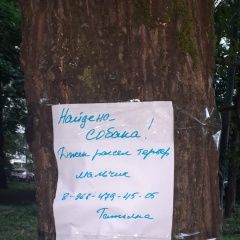 Найдено-
собака!
Джек рассел терьер
мальчик
8-968-479-45-05
Татьяна